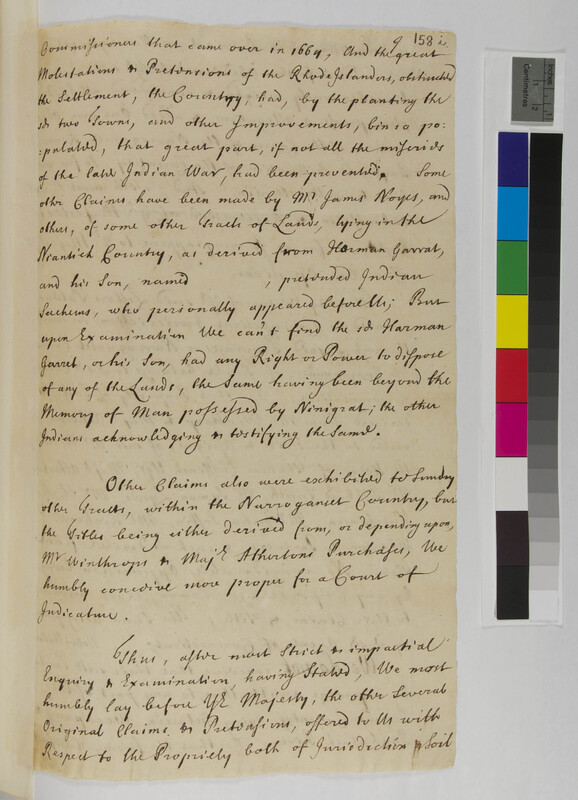 9 158
Commissioners that came over in 1664, And the great
Molestations & Pretensions of the Rhode Islanders, obstructed
the Settlement, the Country, had, by the planting the
sd two Towns, and other Improvements, bin so po-
:pulated, that great part, if not all the miseries
of the late Indian War, had been prevented. Some
othr Claims have been made by Mr James Noyes, and
others, of some other Tracts of Lands, lying in the
Niantick Country, as derived from Harman Garrat,
and his Son, named , pretended Indian
Sachems, who personally appeared before Us; But
upon Examination We can't find the sd Harman
Garret, or his Son, had any Right or Power to dispose
of any of the Lands, the Same having been beyond the
Memory of Man possessed by Ninigrat; the other
Indians acknowledging & testifying the Same.
Other Claims also were exhibited to Sundry
other Tracts, within the Narroganset Country, but
the Titles being either derived from, or depending upon,
Mr Winthrops & Majr Athertons Purchases, We
humbly conceive more proper for a Court of
Judicature.
Thus, after most Strict & impartial
Enquiry & Examination, having Stated, We most
humbly lay before Yr Majesty, the other Several
Original Claims & Pretensions, offered to Us with
Respect to the Propriety both of Jurisdiction & Soil
Inches
1
2
1
Centimetres